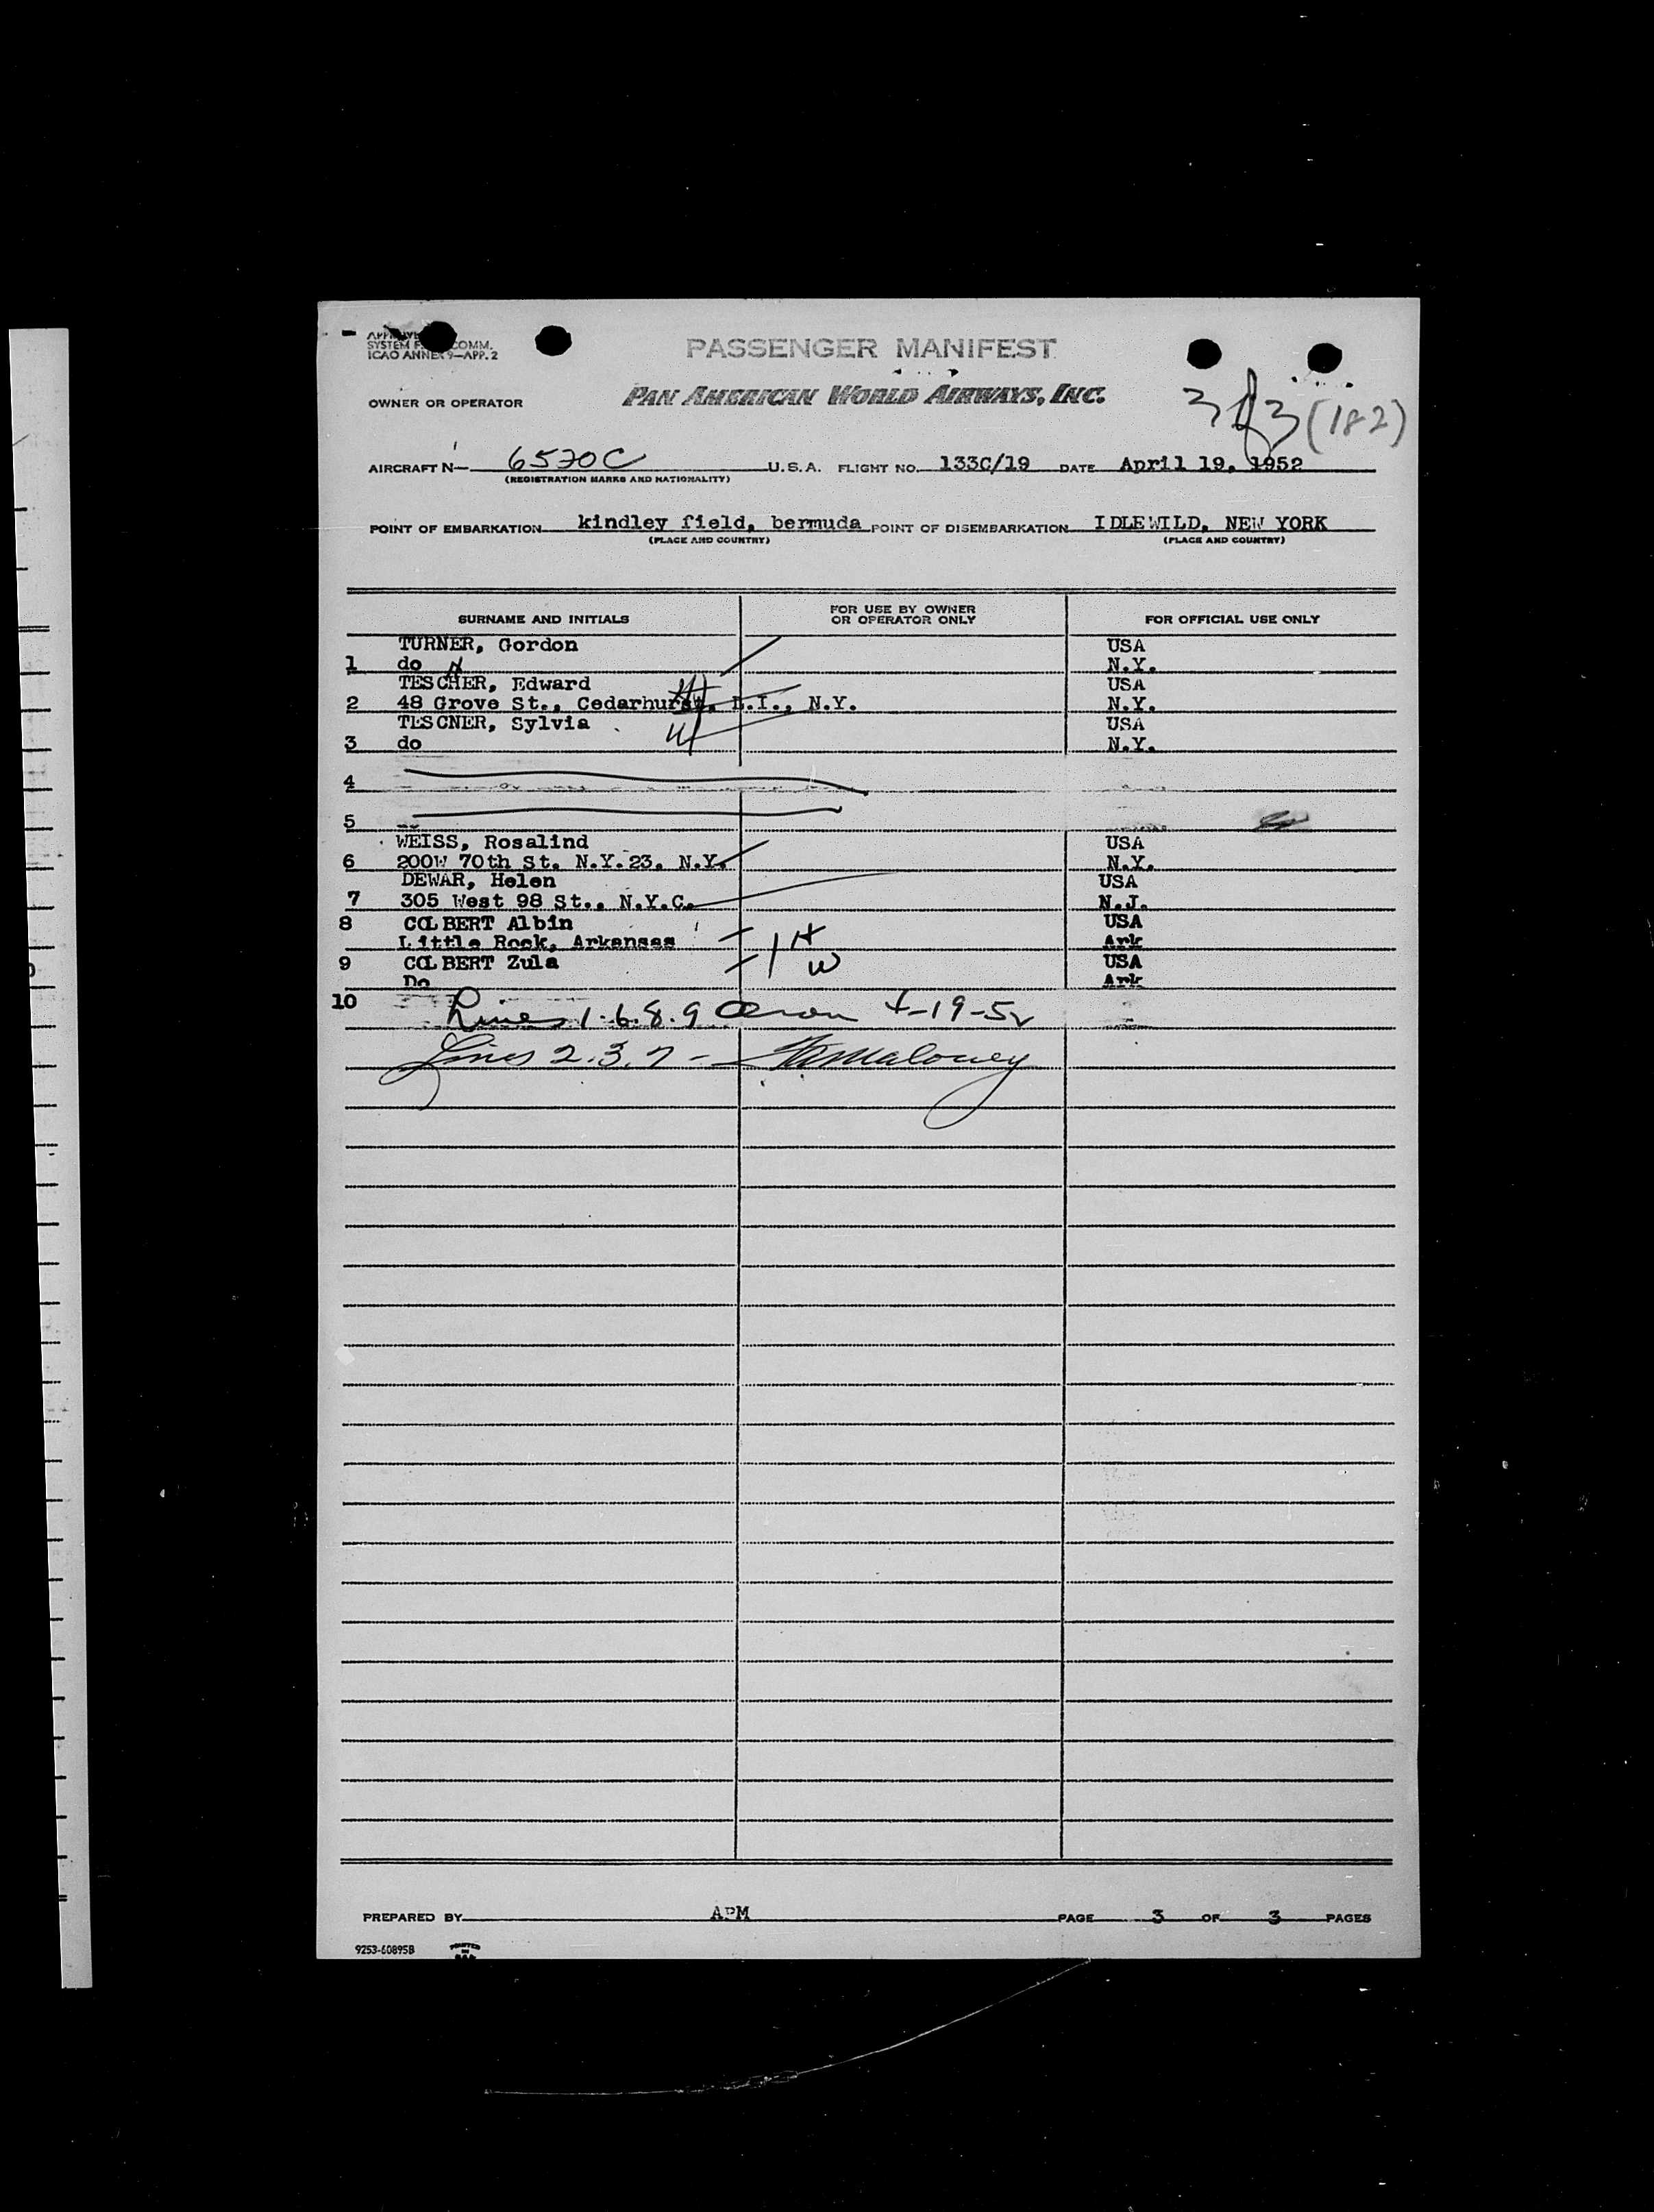 SYSTEM COMM.
ICAO ANNEX 9—APP. 2
PASSENGER MANIFEST
OWNER OR OPERATOR
PAN AMERICAN WORLD AIRWAYS, INC.
3 of 3 (182)
AIRCRAFT N— 6570C U.S.A. FLIGHT NO. 133C/19 DATE April 19, 1952
(REGISTRATION MARKS AND NATIONALITY)
POINT OF EMBARKATION kindley field, bermuda POINT OF DISEMBARKATION IDLEWILD, NEW YORK
(PLACE AND COUNTRY) (PLACE AND COUNTRY)
SURNAME AND INITIALS FOR USE BY OWNER OR OPERATOR ONLY FOR OFFICIAL USE ONLY
TURNER, Gordon USA
1 do N.Y.
N
TESCHER, Edward H USA
2 48 Grove St., Cedarhurst, L.I., N.Y. N.Y.
TESCNER, Sylvia W USA
3 do N.Y.
4
5
WEISS, Rosalind USA
6 200W 70th St. N.Y.23, N.Y. N.Y.
DEWAR, Helen USA
7 305 West 98 St., N.Y.C. N.J.
8 COLBERT Albin USA
Little Rock, Arkansas H Ark
9 COLBERT Zula W USA
Do Ark
10
Lines 1.6.8.9 4-19-52
Lines 2.3.7 - Maloney
PREPARED BY APM PAGE 3 OF 3 PAGES
9253-60895B PRINTED IN U.S.A.